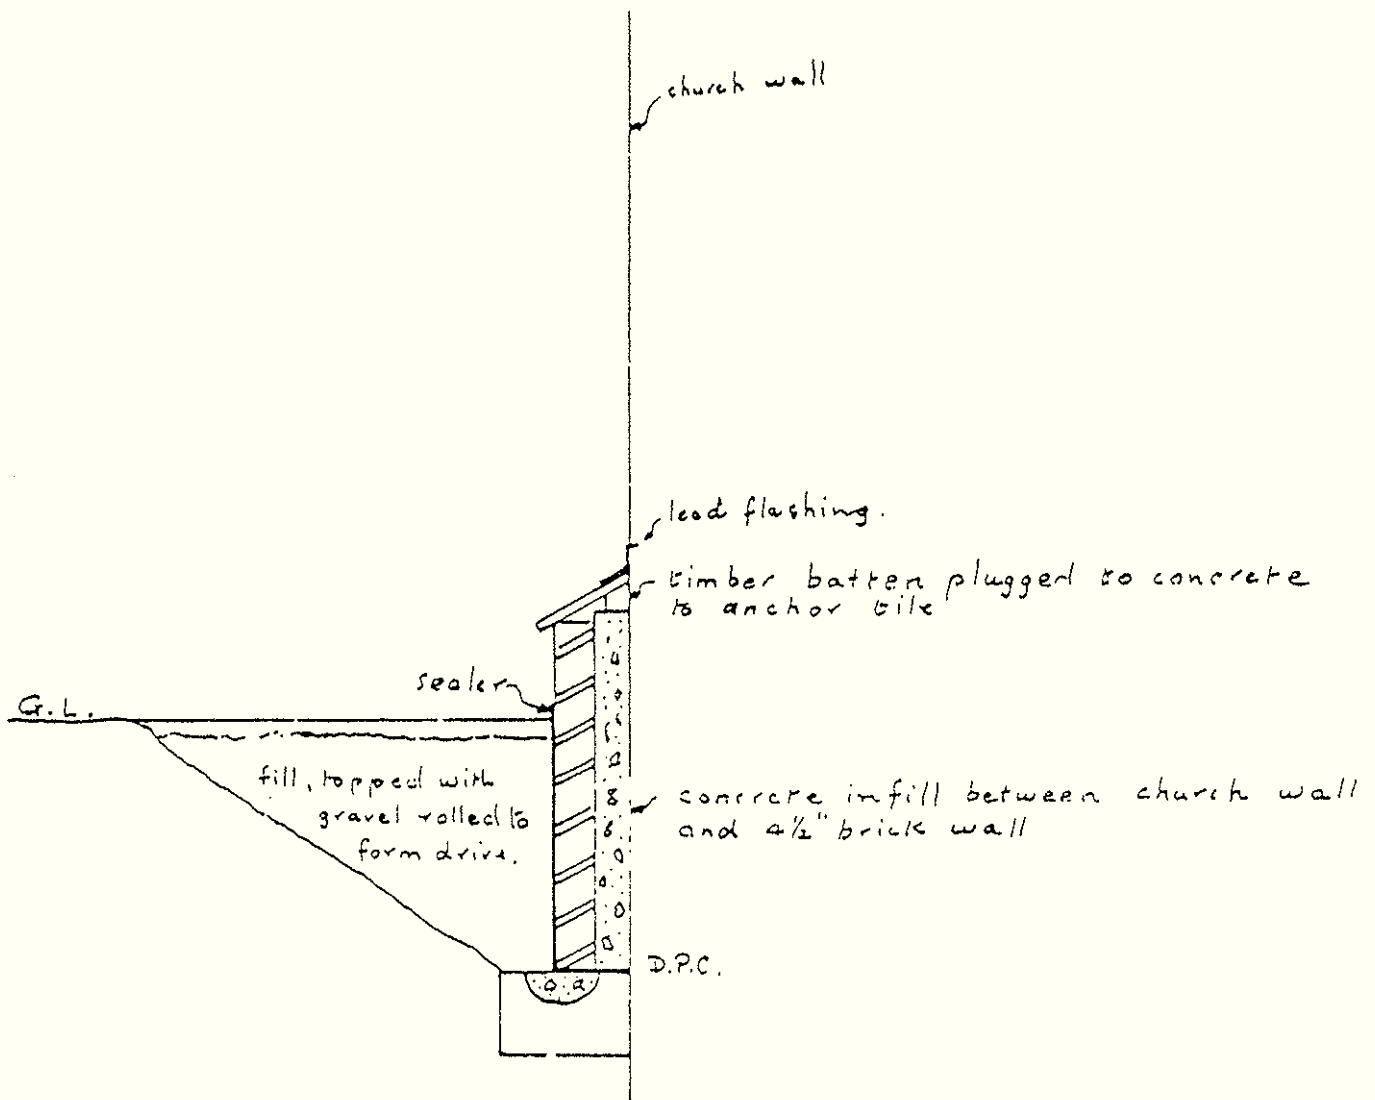 church wall
lead flashing.
timber batten plugged to concrete
to anchor tile
sealer
G.L.
fill, topped with
gravel rolled to
form drive.
concrete infill between church wall
and 4½" brick wall
D.P.C.